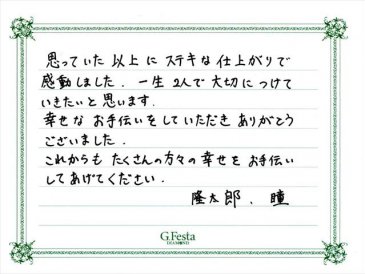 思っていた以上にステキな仕上がりで
感動しました．一生２人で大切につけて
いきたいと思います．
幸せなお手伝いをしていただきありがとう
ございました．
これからもたくさんの方々の幸せをお手伝い
してあげてください．
隆太郎、瞳
G.Festa
DIAMOND